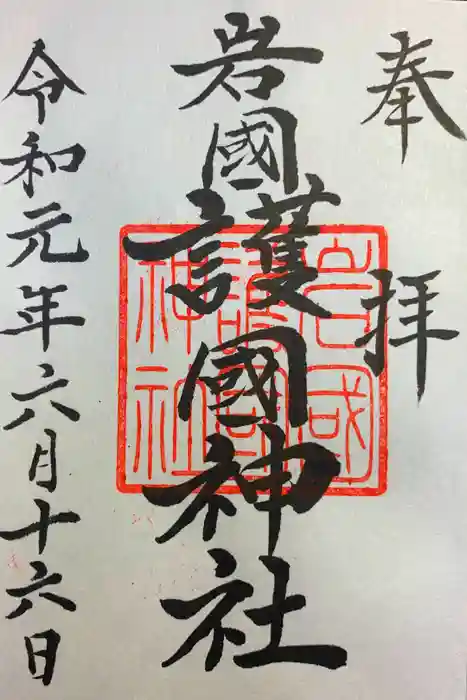 奉拝
岩國護國神社
岩国
護国
神社
令和元年六月十六日